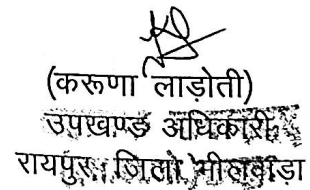 (करूणा लाड़ोती)
उपखण्ड अधिकारी
रायपुर, जिला भीलवाड़ा